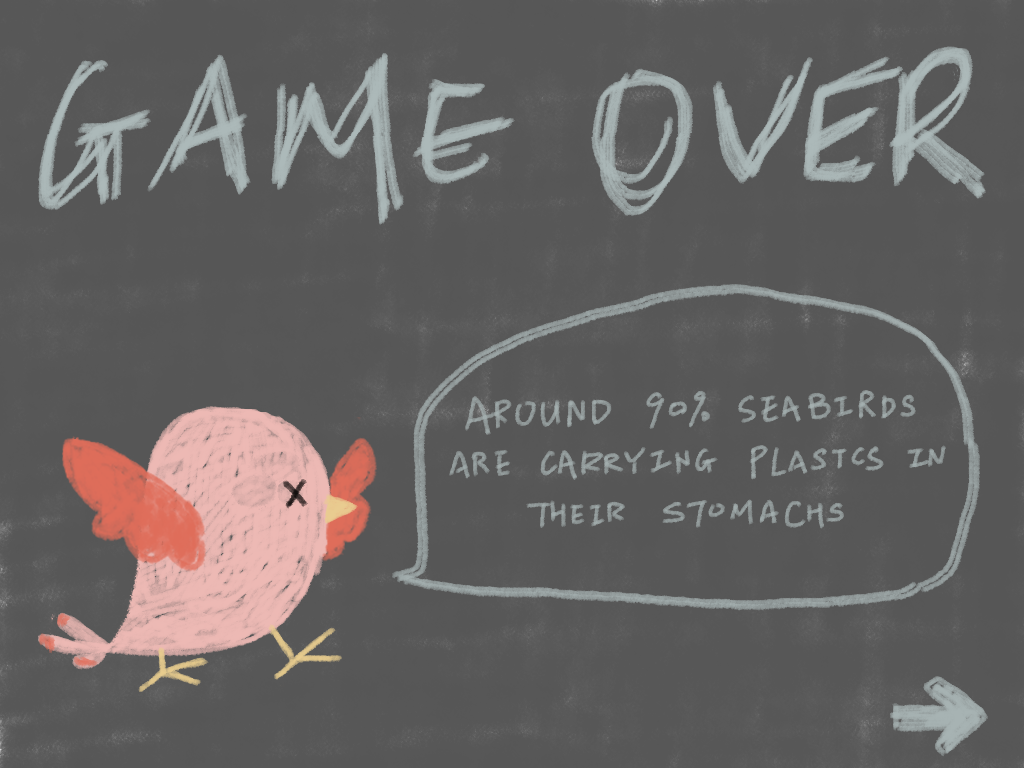 GAME OVER
AROUND 90% SEABIRDS
ARE CARRYING PLASTICS IN
THEIR STOMACHS